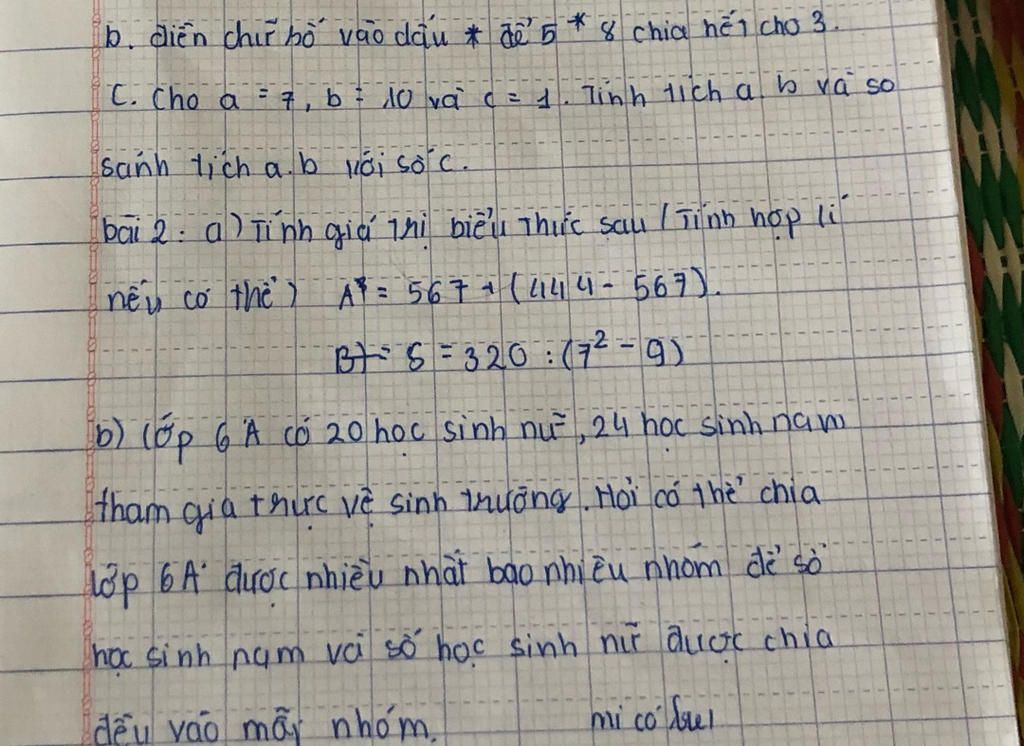 b. điền chữ số vào dấu * để 5 * 8 chia hết cho 3.
C. Cho a = 7, b = 10 và c = 1. Tính tích a b và so
sánh tích a.b với số c.
bài 2: a) Tính giá trị biểu thức sau (Tính hợp lí
nếu có thể) A = 567 + (444 - 567).
B = 320 : (7² - 9)
b) lớp 6 A có 20 học sinh nữ, 24 học sinh nam
tham gia trực vệ sinh trường. Hỏi có thể chia
lớp 6A được nhiều nhất bao nhiêu nhóm để số
học sinh nam và số học sinh nữ được chia
đều vào mấy nhóm.